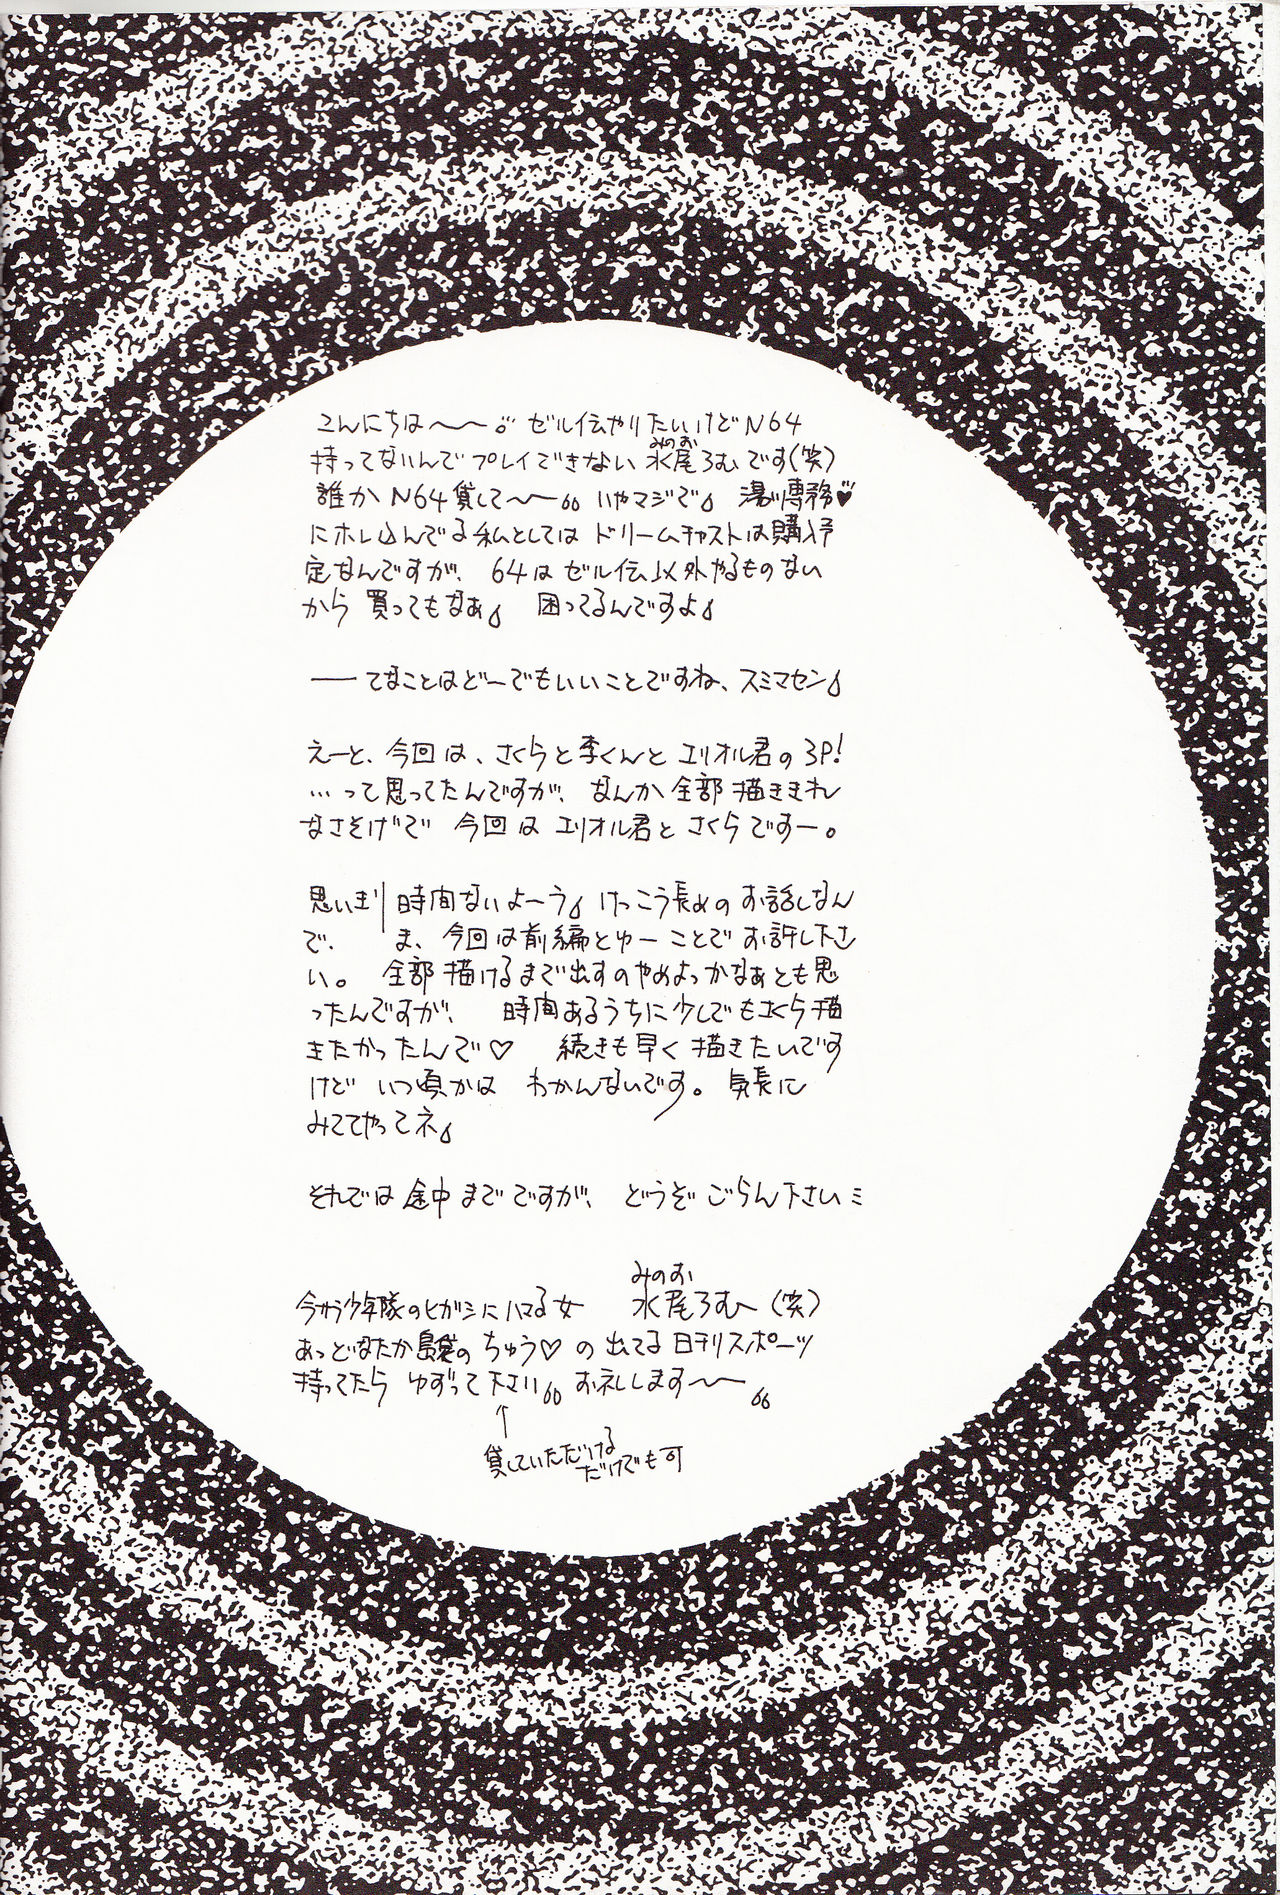 こんにちは〜〜 ゼル伝やりたいけどN64
持ってないんで プレイできない 水尾ろむです(笑)
みのお
誰か N64 貸して〜〜 いやマジで 湯川専務♥
にホレ込んでる私としては ドリームキャストは購入予
定なんですが、 64は ゼル伝以外やるものない
から 買ってもなぁ 困ってるんですよ
── てなことはど〜でもいいことですね、スミマセン
えーと、今回は、さくらと李くんと エリオル君の 3P!
…って思ってたんですが、 なんか全部描ききれ
なさそげで 今回は エリオル君と さくらですー。
思いきり 時間ないよーう けっこう長めの お話しなん
で、 ま、今回は前編とゆーことで お許し下さ
い。 全部描けるまで出すのやめよっかなぁとも思
ったんですが、 時間あるうちに少しでもさくら描
きたかったんで♡ 続きも早く描きたいです
けど いつ頃かは わかんないです。 気長に
みててやってネ
それでは 途中までですが、 どうぞ ごらん下さい ミ
みのお
今さら少年隊のヒガシにハマる女 水尾ろむ〜(笑)
あっ どなたか の ちゅう♡ の出てる日刊スポーツ
持ってたら ゆずって下さい お礼します〜〜
↑
貸していただける
だけでも可